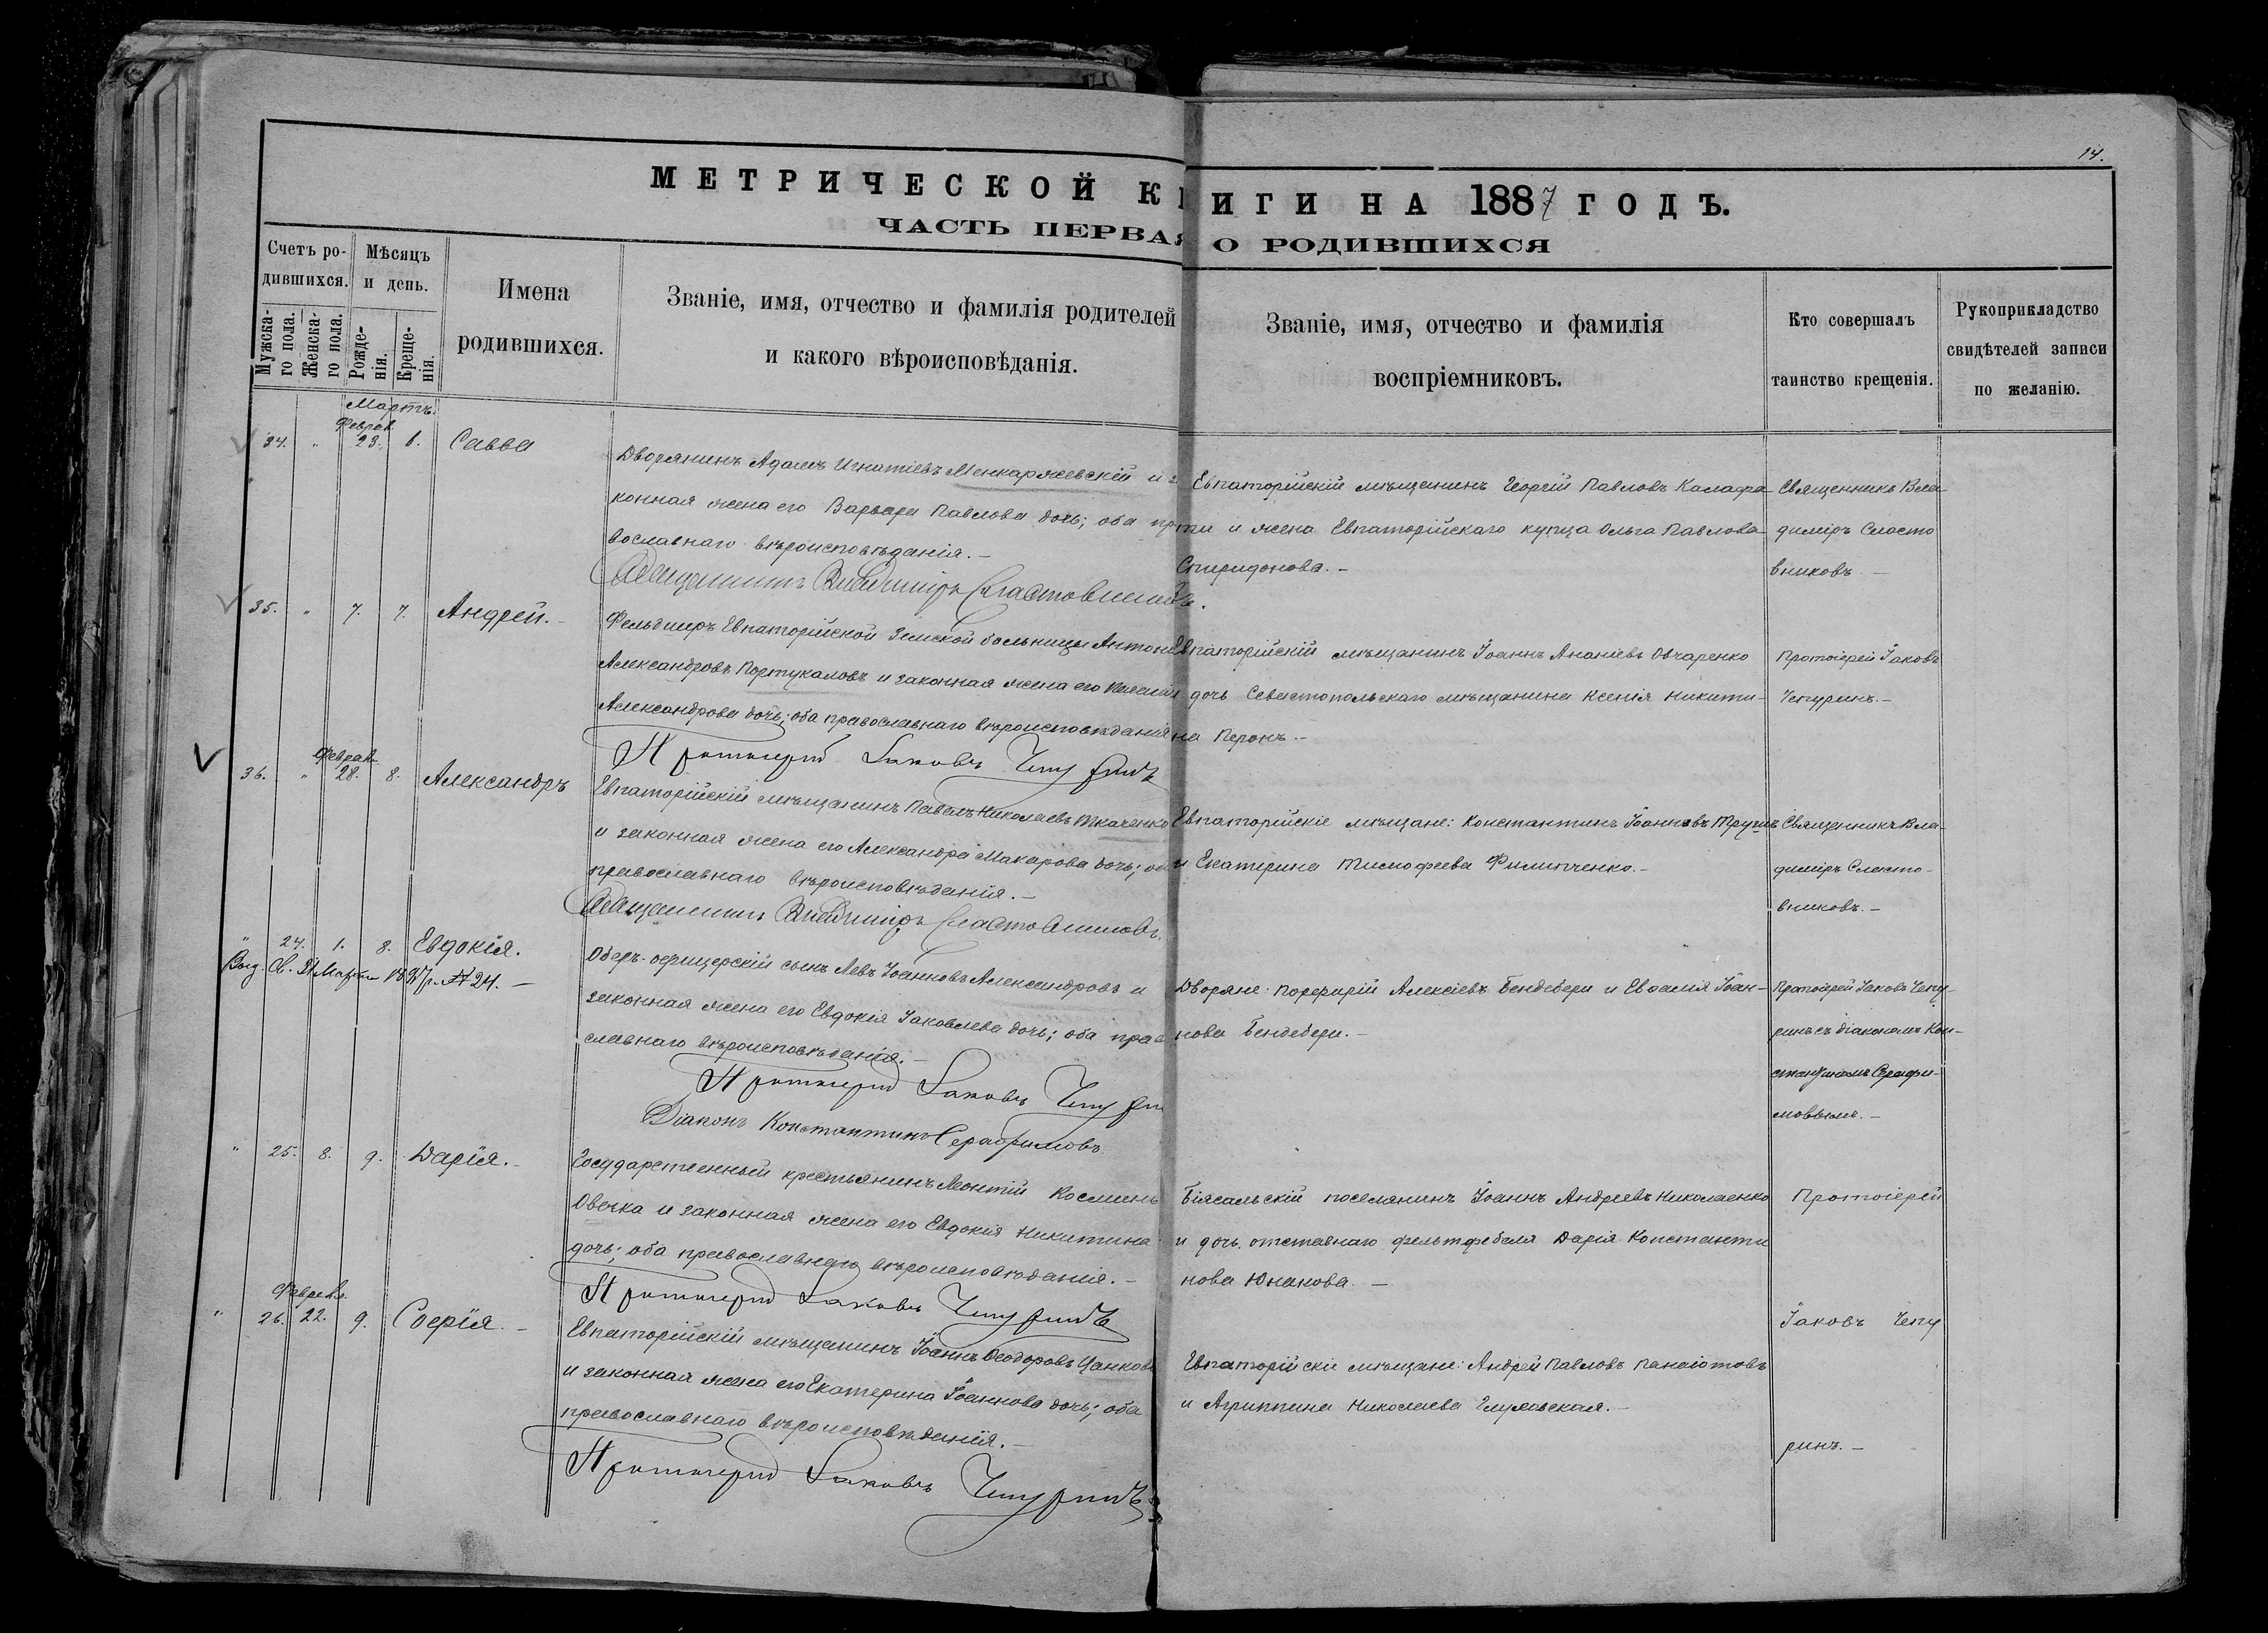 14.
МЕТРИЧЕСКОЙ КНИГИ НА 1887 ГОДЪ.
ЧАСТЬ ПЕРВАЯ О РОДИВШИХСЯ
Счетъ родившихся.
Мужскаго пола.
Женскаго пола.
Мѣсяцъ и день.
Рожденія.
Крещенія.
Имена родившихся.
Званіе, имя, отчество и фамилія родителей
и какого вѣроисповѣданія.
Званіе, имя, отчество и фамилія
воспріемниковъ.
Кто совершалъ
таинство крещенія.
Рукоприкладство
свидѣтелей записи
по желанію.
Мартъ.
Феврал.
34. " 23. 1. Савва
Дворянинъ Адамъ Игнатіевъ Менкаржевскій и за
конная жена его Варвара Павлова дочь; оба пра
вославнаго вѣроисповѣданія. –
Священникъ Владиміръ Сластовниковъ.
Евпаторійскій мѣщанинъ Георгій Павловъ Калафа
ти и жена Евпаторійскаго купца Ольга Павлова
Спиридонова. –
Священникъ Вла
диміръ Сласто
вниковъ. –
35. " 7. 7. Андрей. –
Фельдшеръ Евпаторійской Земской больницы Антонъ
Александровъ Портукаловъ и законная жена его
Александрова дочь; оба православнаго вѣроисповѣданія
Протоіерей Іаковъ Чепуринъ
Евпаторійскій мѣщанинъ Іоаннъ Ананіевъ Овчаренко
дочь Севастопольскаго мѣщанина Ксенія Никити-
на Перонъ. –
Протоіерей Іаковъ
Чепуринъ. –
Феврал.
36. " 28. 8. Александръ
Евпаторійскій мѣщанинъ Павелъ Николаевъ Ткаченко
и законная жена его Александра Макарова дочь; оба
православнаго вѣроисповѣданія. –
Священникъ Владиміръ Сластовниковъ.
Евпаторійскіе мѣщане: Константинъ Іоанновъ
и Екатерина Тимофеева Филипченко. –
Священникъ Вла-
диміръ Сласто-
вниковъ. –
" 24. 1. 8. Евдокія.
Выд. Св. 31 Марта 1897 г. № 24. –
Оберъ-офицерскій сынъ Левъ Іоанновъ Александровъ и
законная жена его Евдокія Іаковлева дочь; оба право
славнаго вѣроисповѣданія. –
Протоіерей Іаковъ Чепуринъ
Діаконъ Константинъ Серафимовъ
Дворяне: Порфирій Алексіевъ Бендебери и Евѳалія Іоан-
нова Бендебери. –
Протоіерей Іаковъ Чепу-
ринъ съ діакономъ Кон-
стантиномъ Серафи-
мовымъ. –
" 25. 8. 9. Дарія. –
Государственный крестьянинъ Леонтій Косминъ
Овечка и законная жена его Евдокія Никитина
дочь; оба православнаго вѣроисповѣданія. –
Протоіерей Іаковъ Чепуринъ
Біясальскій поселянинъ Іоаннъ Андреевъ Николаенко
и дочь отставнаго фельтфебеля Дарія Константи
нова Юнакова. –
Протоіерей
Феврал.
" 26. 22. 9. Софія. –
Евпаторійскій мѣщанинъ Іоаннъ Ѳеодоровъ Цанковъ
и законная жена его Екатерина Іоаннова дочь; оба
православнаго вѣроисповѣданія. –
Протоіерей Іаковъ Чепуринъ
Евпаторійскіе мѣщане: Андрей Павловъ Панаіотовъ
и Агриппина Николаева
Іаковъ Чепу
ринъ. –